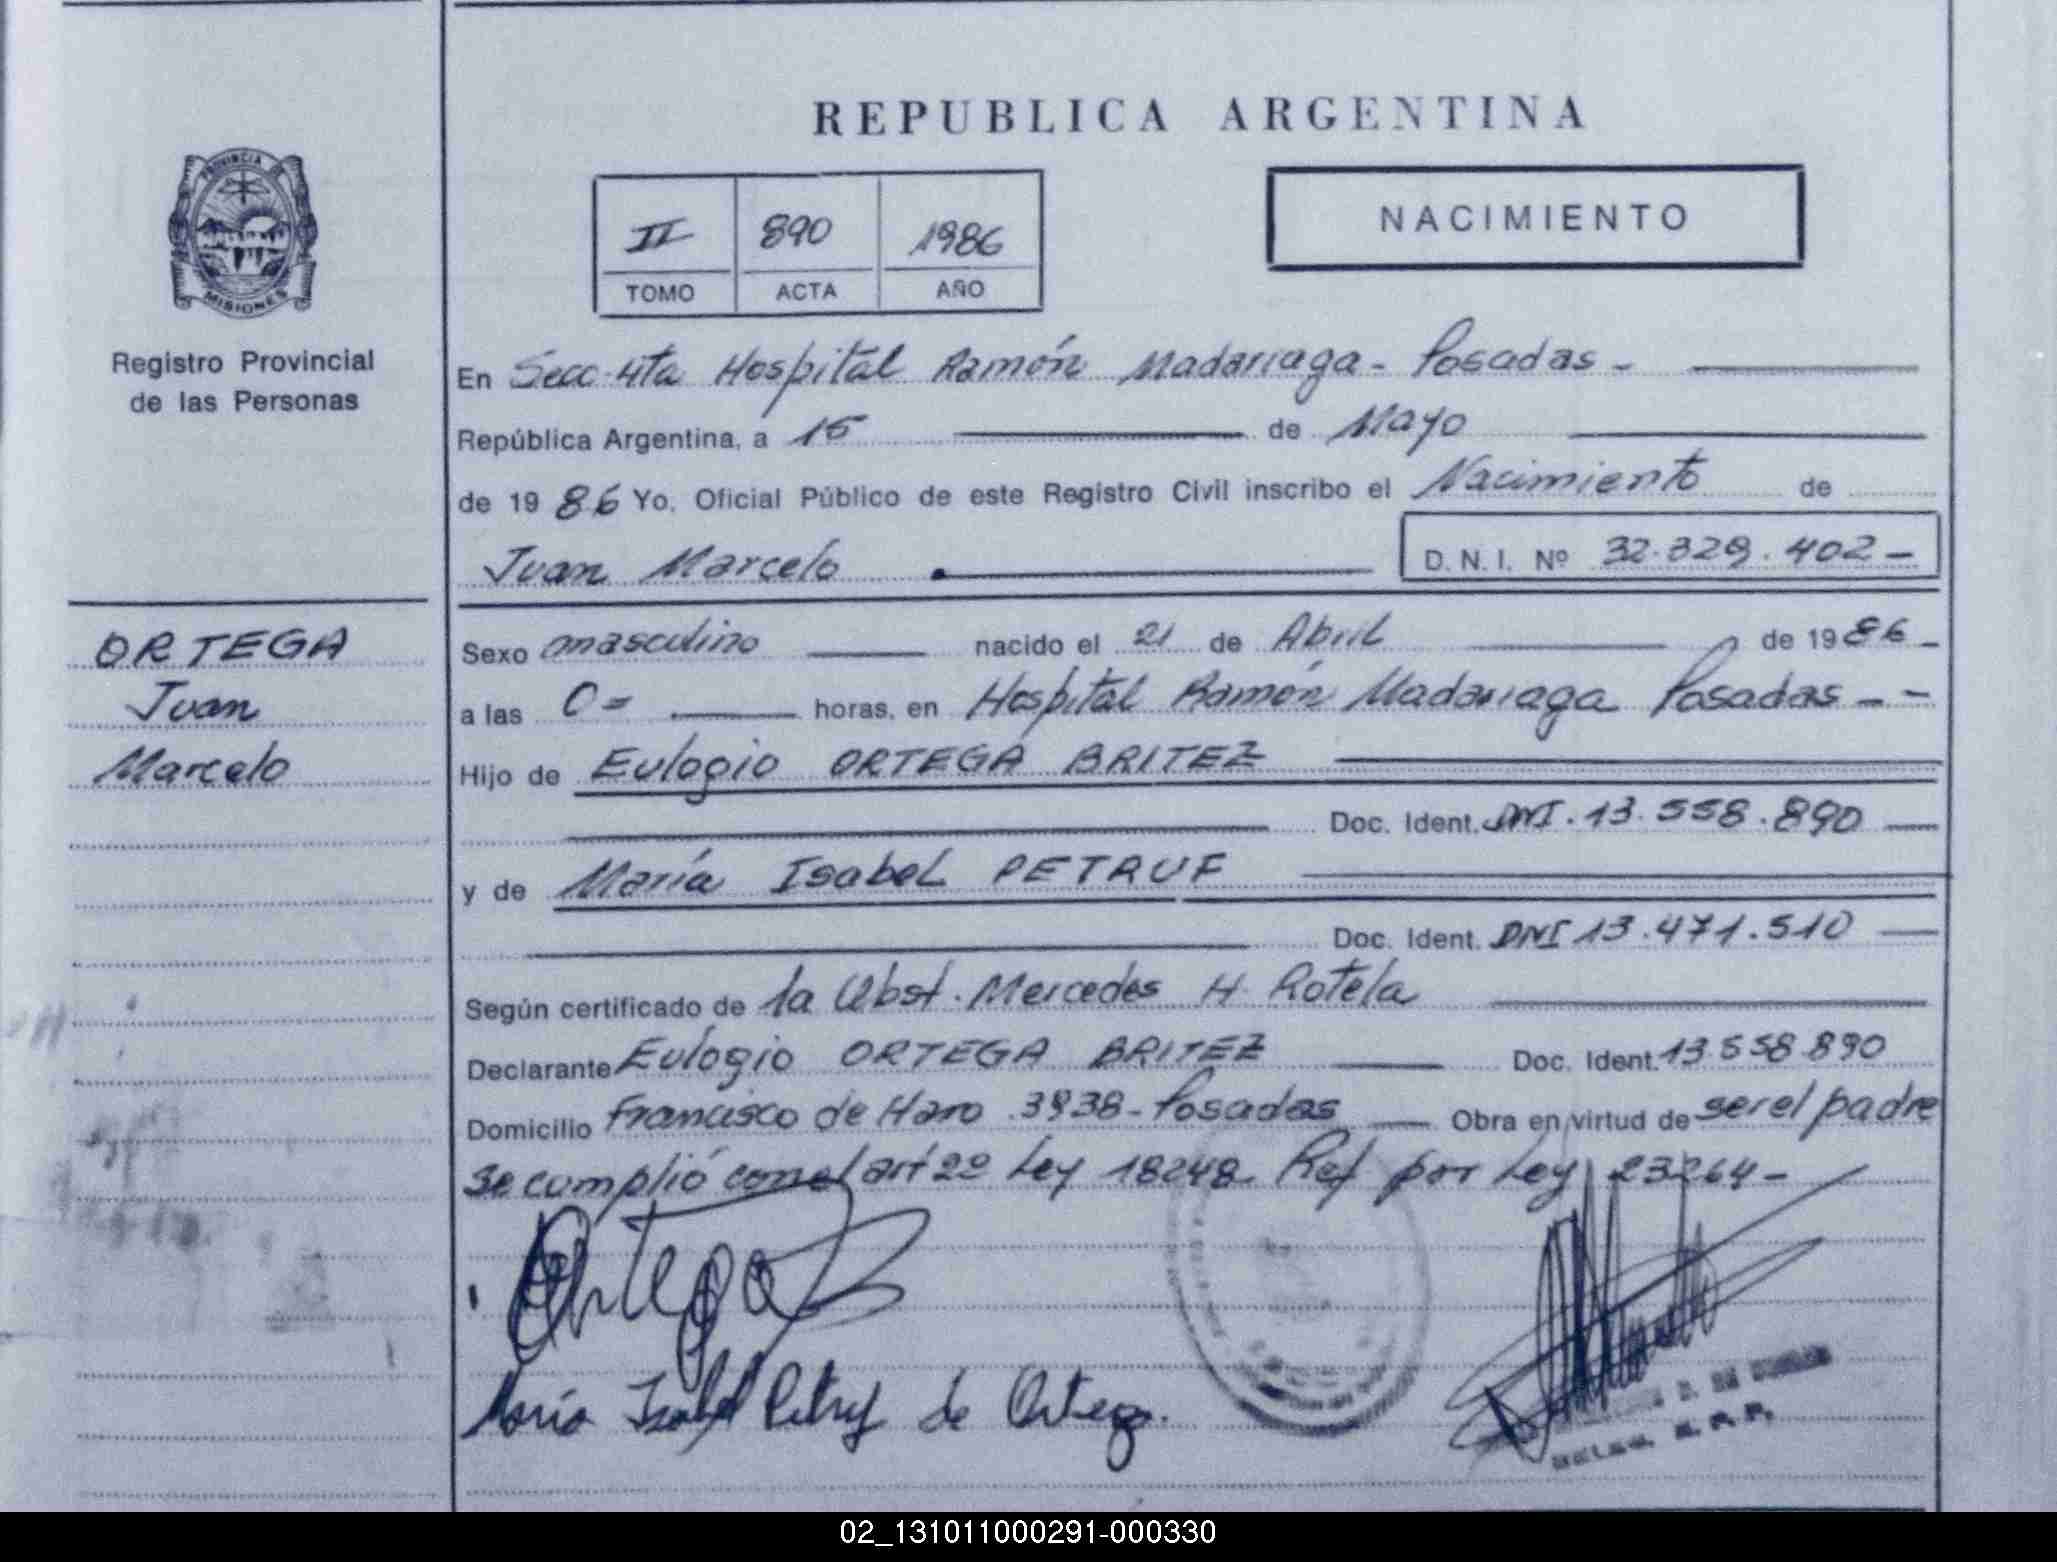 REPUBLICA ARGENTINA
PROVINCIA DE
MISIONES
Registro Provincial
de las Personas
II 890 1986
TOMO ACTA AÑO
NACIMIENTO
En Secc. 4ta Hospital Ramón Madariaga - Posadas -
República Argentina, a 15 de Mayo
de 1986 Yo, Oficial Público de este Registro Civil inscribo el Nacimiento de
Juan Marcelo D.N.I. Nº 32.329.402 -
ORTEGA
Juan
Marcelo
Sexo masculino nacido el 21 de Abril de 1986 -
a las 0 = horas, en Hospital Ramón Madariaga Posadas - -
Hijo de Eulogio ORTEGA BRITEZ
Doc. Ident. DNI. 13.558.890
y de María Isabel PETRUF
Doc. Ident. DNI 13.471.510
Según certificado de la Obst. Mercedes H. Rotela
Declarante Eulogio ORTEGA BRITEZ Doc. Ident. 13.558.890
Domicilio Francisco de Haro 3938 - Posadas Obra en virtud de ser el padre
se cumplió con el art 2º Ley 18248. Ref por Ley 23264 -
Ortega B
María Isabel Petruf de Ortega.
02_131011000291-000330